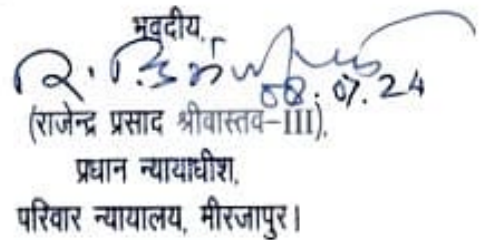 भवदीय,
08.07.24
(राजेन्द्र प्रसाद श्रीवास्तव-III),
प्रधान न्यायाधीश,
परिवार न्यायालय, मीरजापुर।